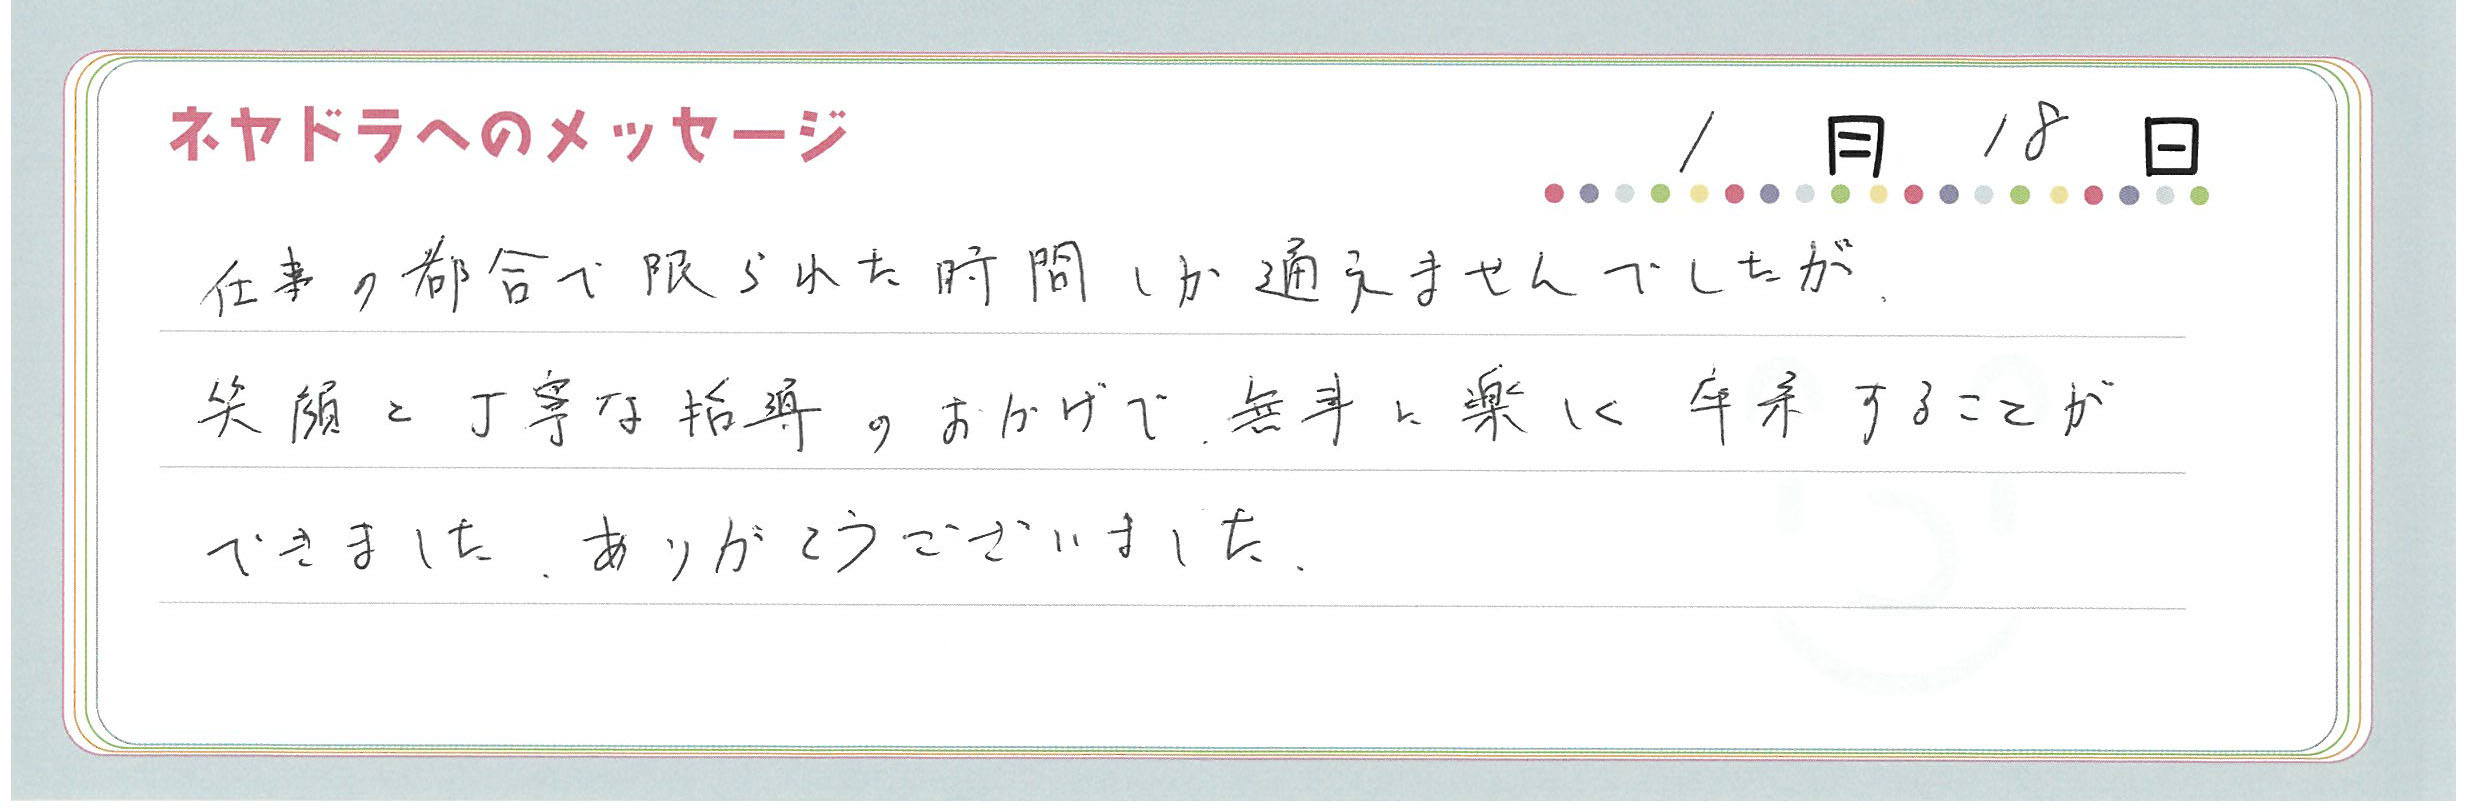 ネヤドラへのメッセージ
1月18日
仕事の都合で限られた時間しか通えませんでしたが、
笑顔と丁寧な指導のおかげで、無事に楽しく卒業することが
できました。ありがとうございました。